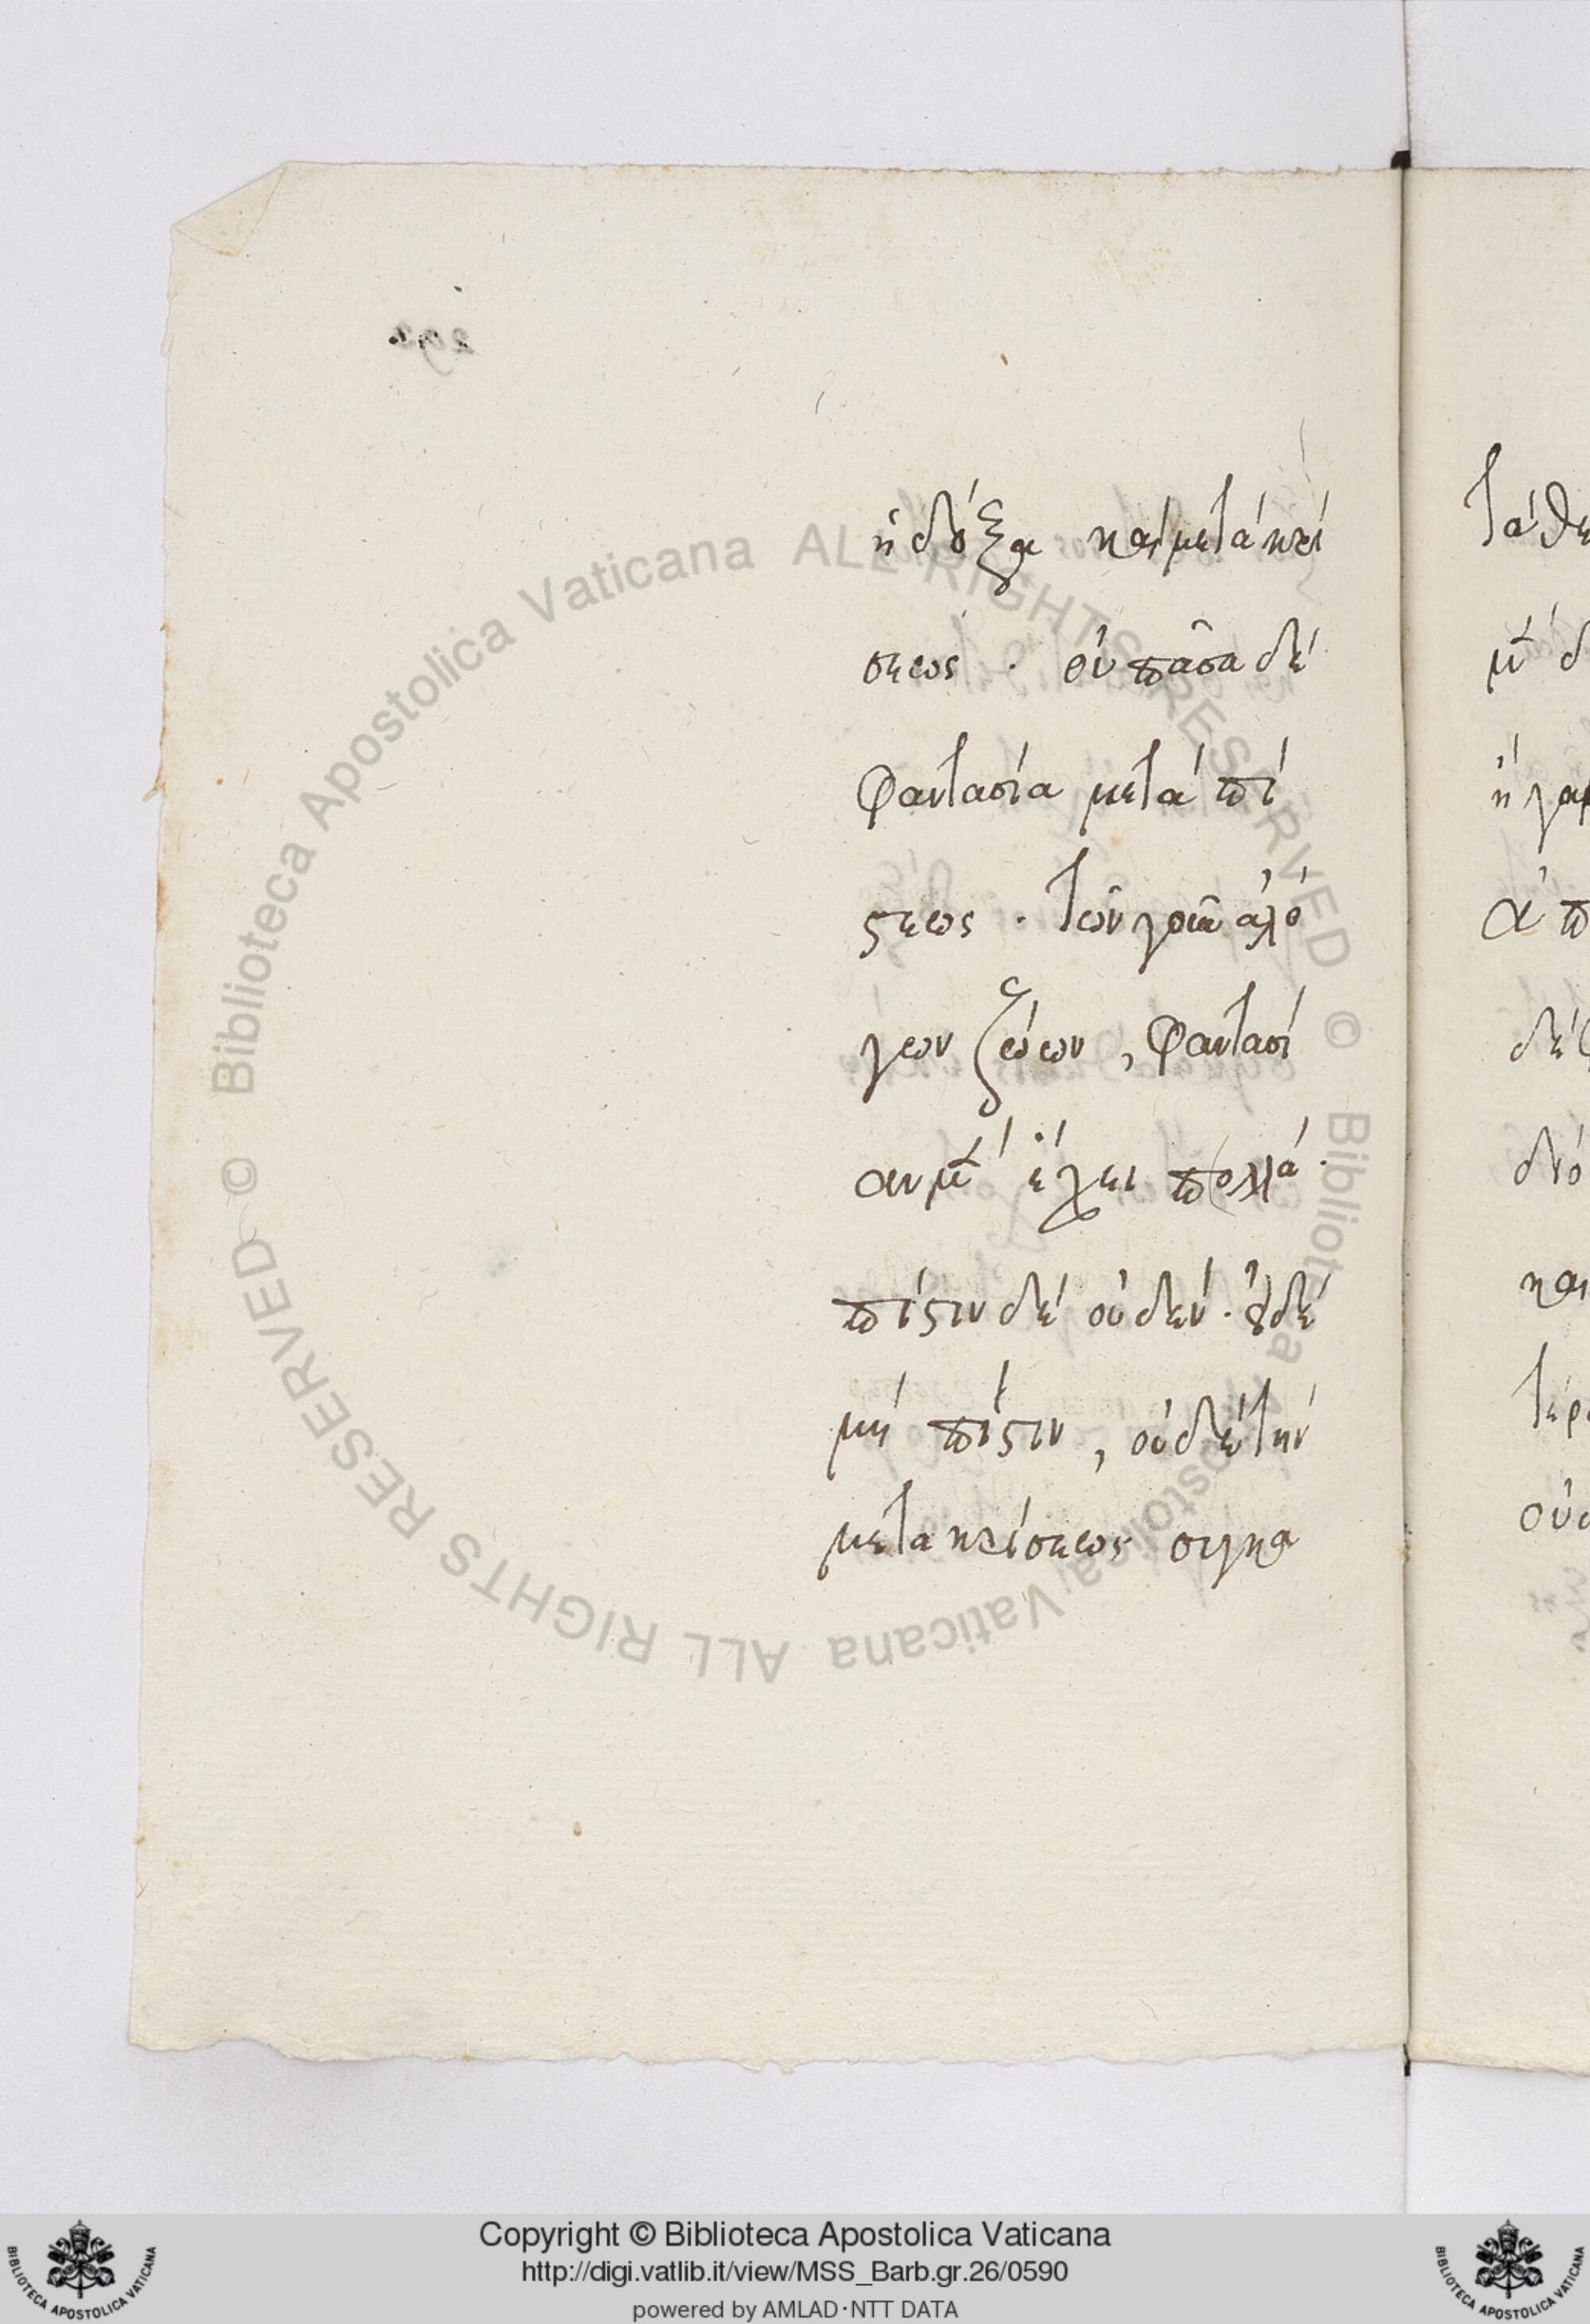 ἡ δόξα καὶ μετὰ κρί
σεως . οὐ πᾶσα δέ
φαντασία μετὰ πί
στεως . τῶν γοῦν ἀλό
γων ζώων , φαντασί
αν μὲν ἔχει πολλά .
πίστιν δὲ οὐδέν . εἰ δέ
μὴ πίστιν , οὐδὲ τὴν
μετα κρίσεως συγκα
τὰ θε
μὲν δ
ἡ γαρ
ἀπ
δέ
διό
και
τερ
οὐ
© Biblioteca Apostolica Vaticana ALL RIGHTS RESERVED © Biblioteca Apostolica Vaticana ALL RIGHTS RESERVED
Copyright © Biblioteca Apostolica Vaticana
http://digi.vatlib.it/view/MSS_Barb.gr.26/0590
powered by AMLAD·NTT DATA
BIBLIOTECA APOSTOLICA VATICANA
BIBLIOTECA APOSTOLICA VATICANA